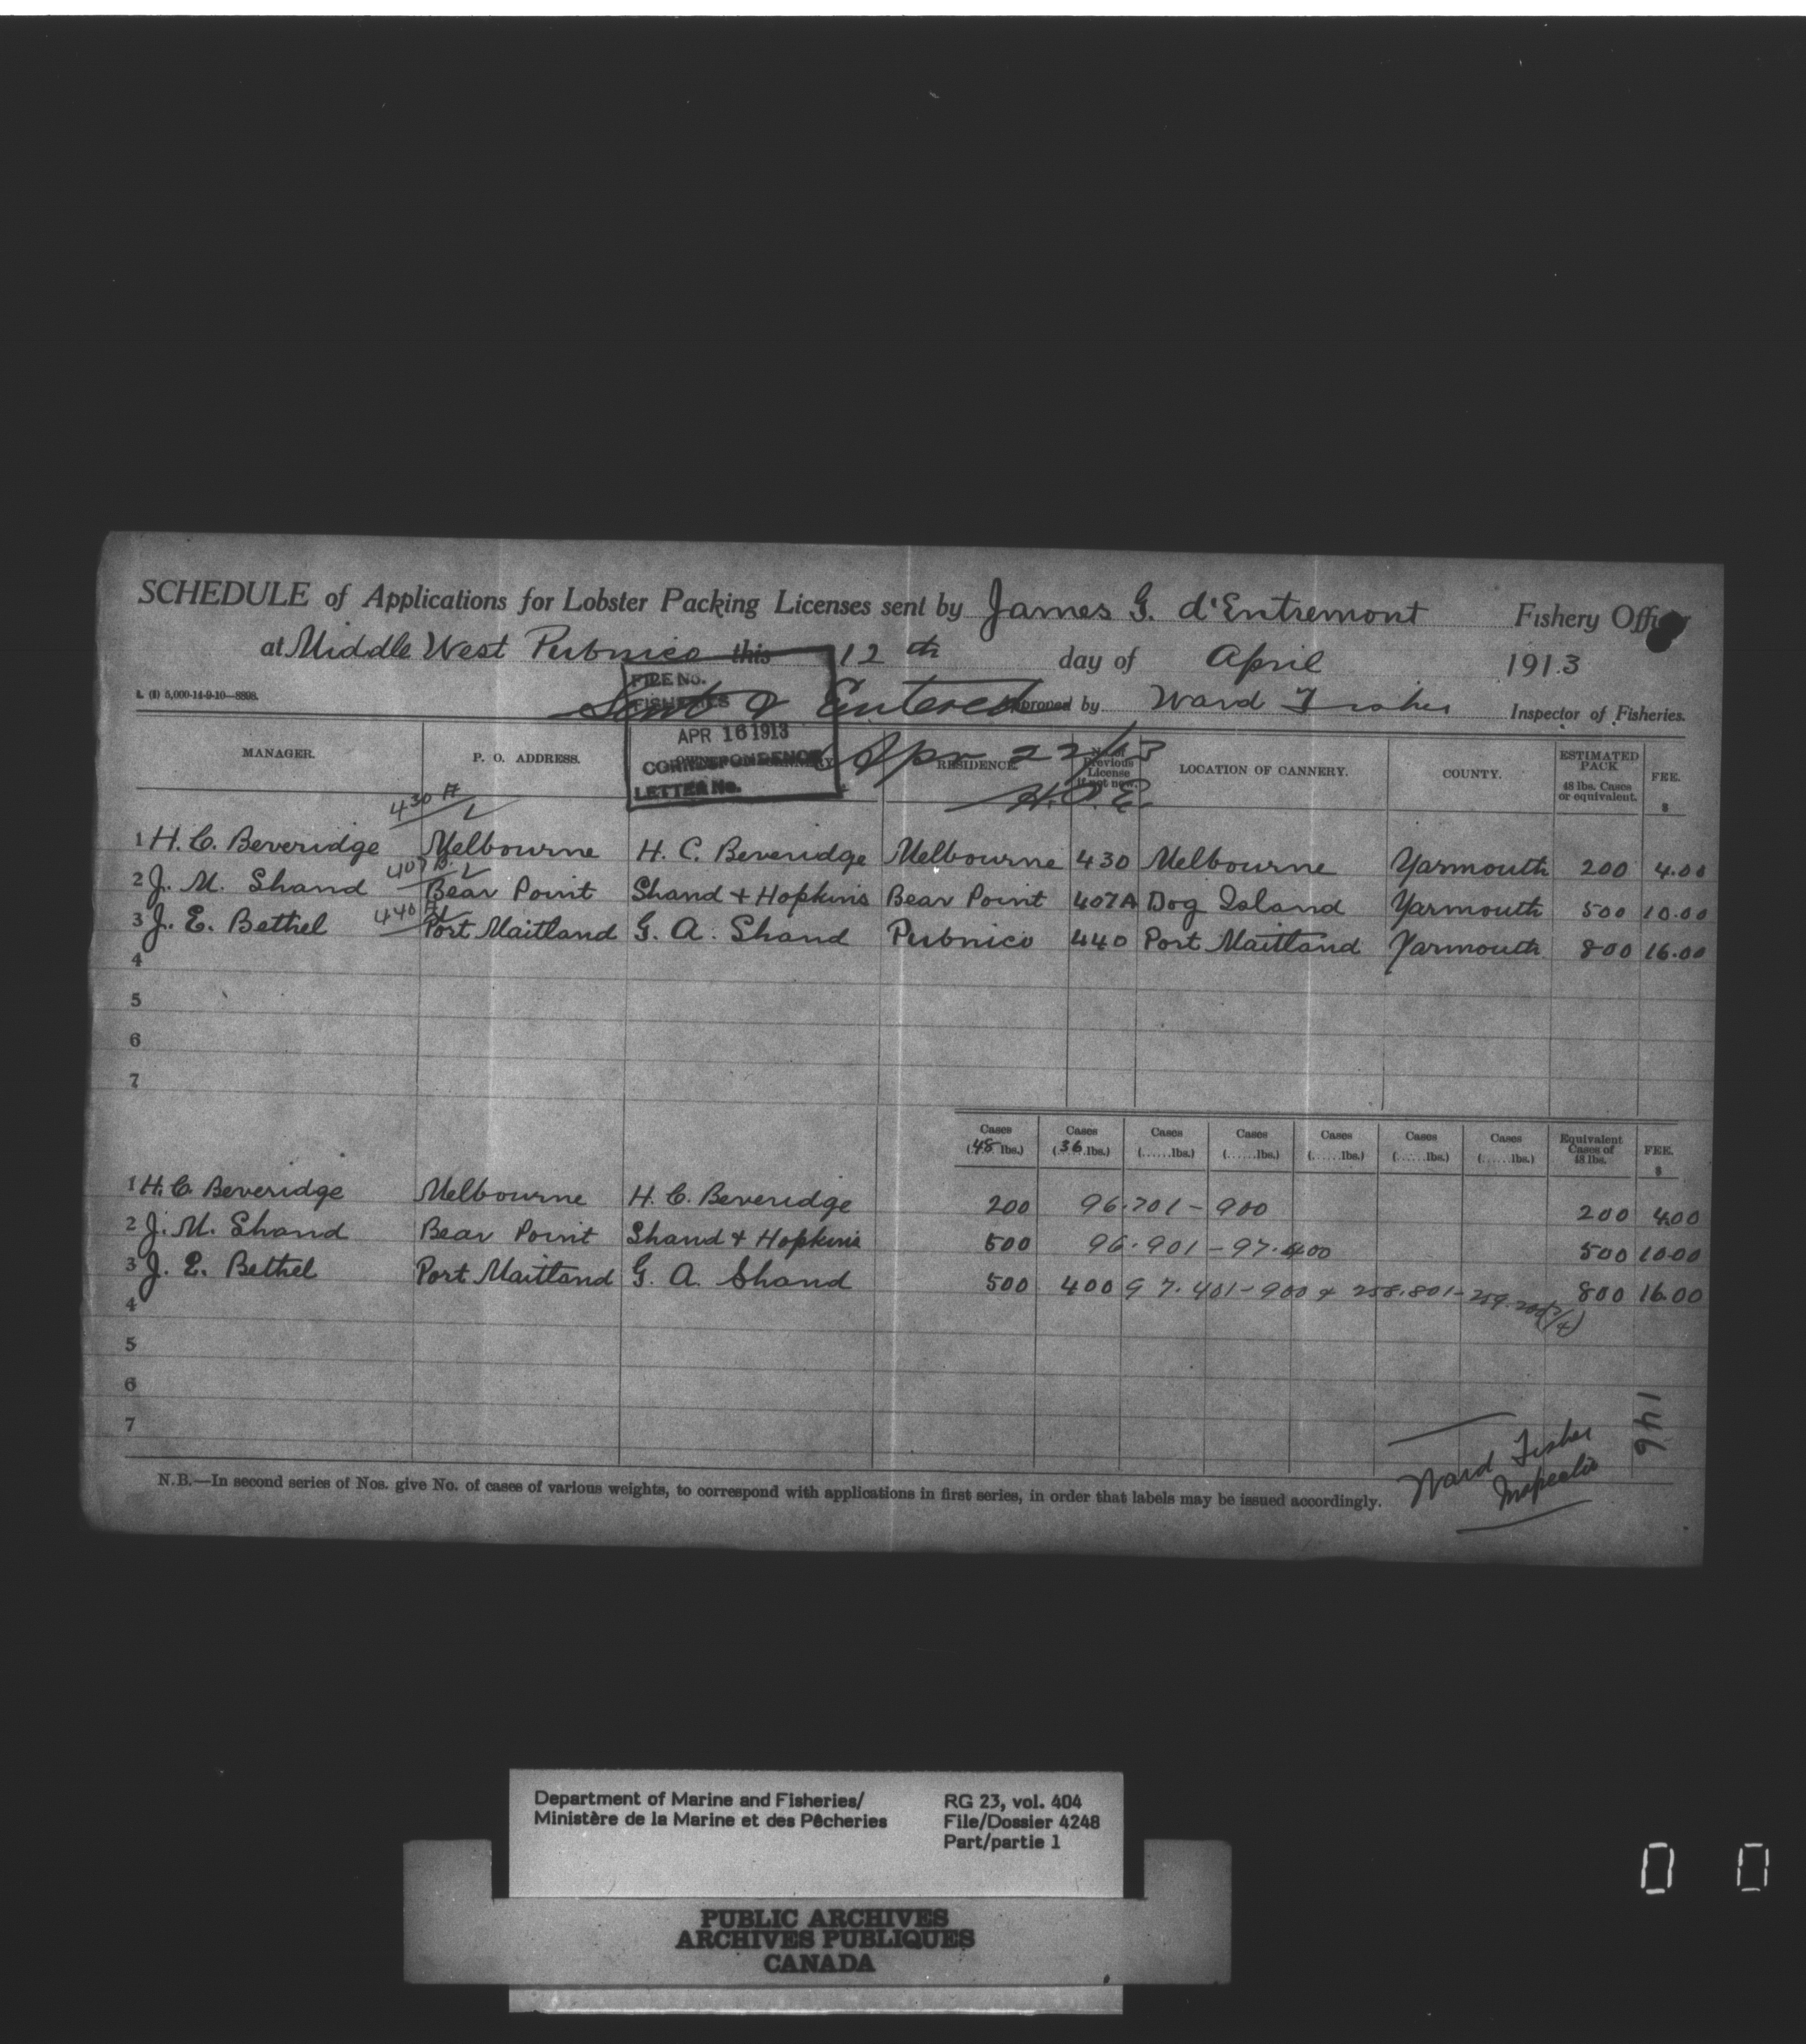 SCHEDULE of Applications for Lobster Packing Licenses sent by James G. d'Entremont Fishery Officer
at Middle West Pubnico this 12th day of April 1913
Approved by Ward Fisher Inspector of Fisheries.
Sent & Entered
Apr 22/13
FILE No.
FISHERIES
APR 16 1913
CORRESPONDENCE
LETTER No.
MANAGER. P. O. ADDRESS. RESIDENCE No. of Previous License if not new. LOCATION OF CANNERY. COUNTY. ESTIMATED PACK 48 lbs. Cases or equivalent. FEE. $
430 A
1 H. C. Beveridge Melbourne H. C. Beveridge Melbourne 430 Melbourne Yarmouth 200 4.00
407 B.
2 J. M. Shand Bear Point Shand + Hopkins Bear Point 407A Dog Island Yarmouth 500 10.00
440 A
3 J. E. Bethel Port Maitland G. A. Shand Pubnico 440 Port Maitland Yarmouth 800 16.00
4
5
6
7
Cases (48 lbs.) Cases (36 lbs.) Cases (......lbs.) Cases (......lbs.) Cases (......lbs.) Cases (......lbs.) Cases (......lbs.) Equivalent Cases of 48 lbs. FEE. $
1 H. C. Beveridge Melbourne H. C. Beveridge 200 96.701 - 900 200 4.00
2 J. M. Shand Bear Point Shand + Hopkins 500 96.901 - 97.400 500 10.00
3 J. E. Bethel Port Maitland G. A. Shand 500 400 97.401 - 900 & 258.801 - 259.200 (3/4) 800 16.00
4
5
6
7
N.B.—In second series of Nos. give No. of cases of various weights, to correspond with applications in first series, in order that labels may be issued accordingly.
Ward Fisher
Inspector
146
Department of Marine and Fisheries/
Ministère de la Marine et des Pêcheries
RG 23, vol. 404
File/Dossier 4248
Part/partie 1
PUBLIC ARCHIVES
ARCHIVES PUBLIQUES
CANADA
0 0